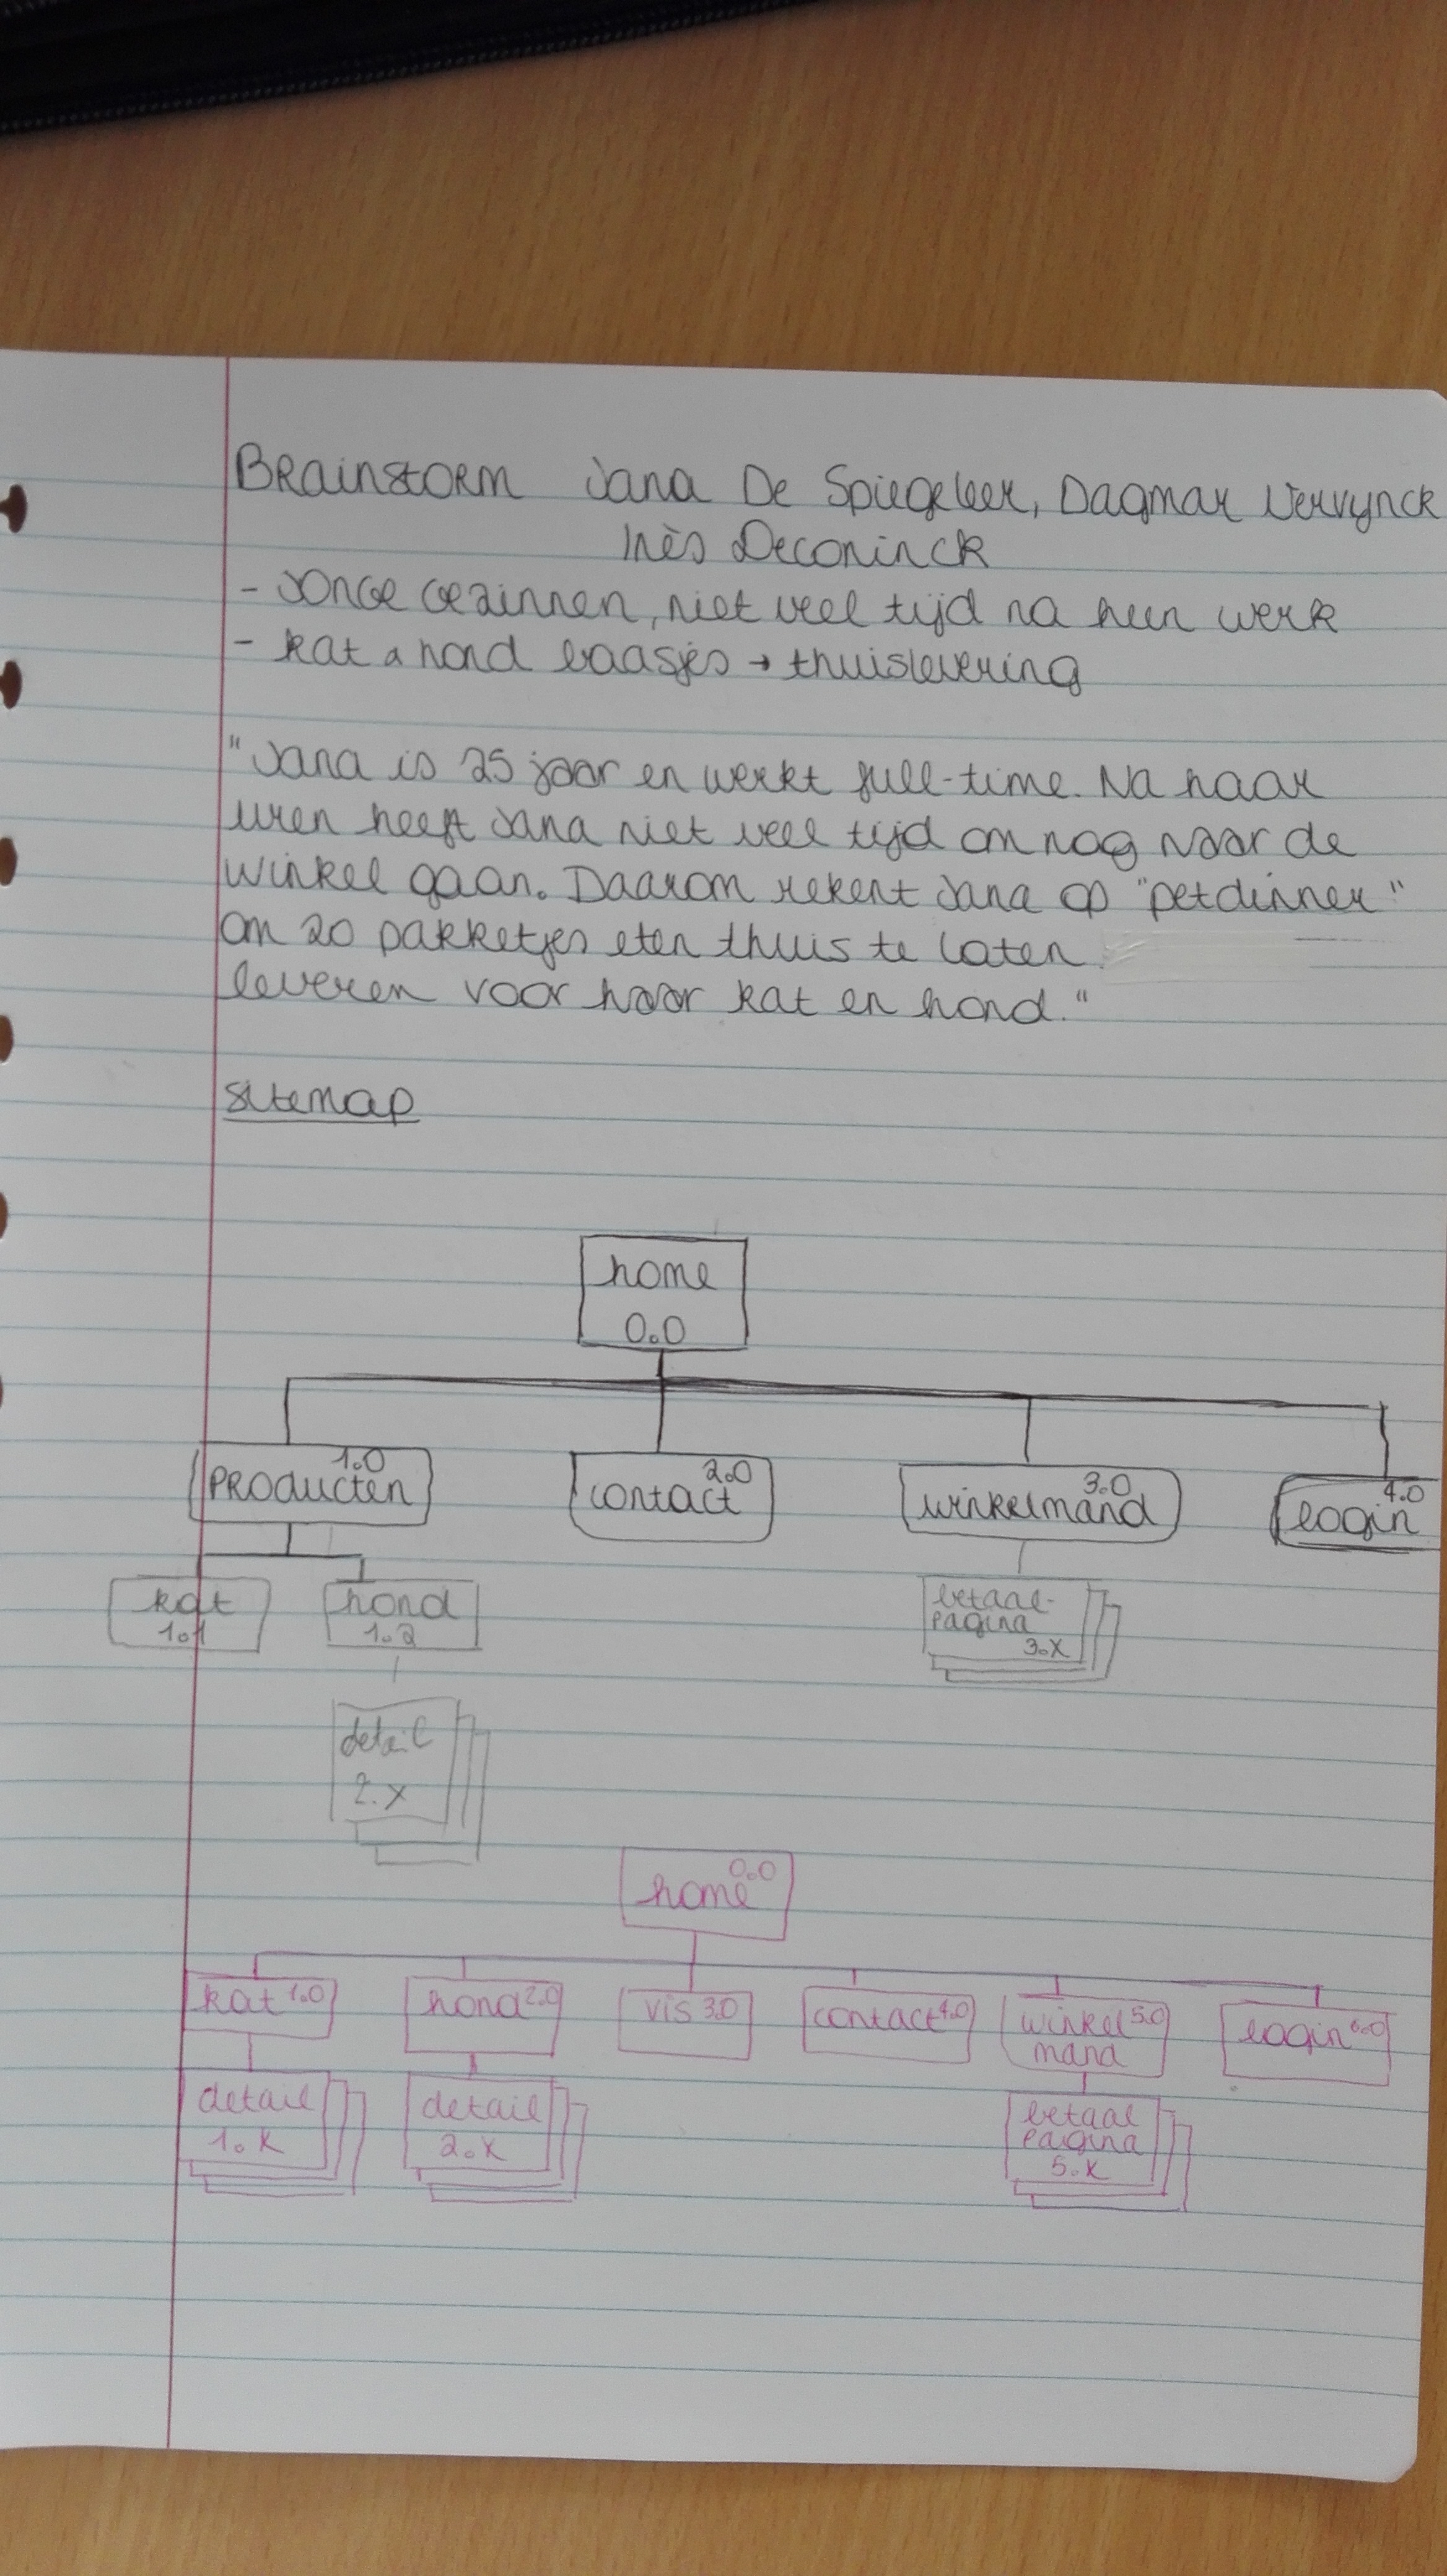 Brainstorm Jana De Spiegeleer, Dagmar Vervynck
Inès Deconinck
- Jonge gezinnen, niet veel tijd na hun werk
- kat & hond baasjes → thuislevering
"Jana is 25 jaar en werkt full-time. Na haar
uren heeft Jana niet veel tijd om nog naar de
winkel gaan. Daarom rekent Jana op "petdinner"
om zo pakketjes eten thuis te laten
leveren voor haar kat en hond."
sitemap
home
0.0
1.0 2.0 3.0 4.0
Producten contact winkelmand login
kat hond betaal-
1.1 1.2 pagina
3.x
detail
2.x
home 0.0
kat 1.0 hond 2.0 vis 3.0 contact 4.0 winkel 5.0 login 6.0
mand
detail detail betaal
1.x 2.x pagina
5.x